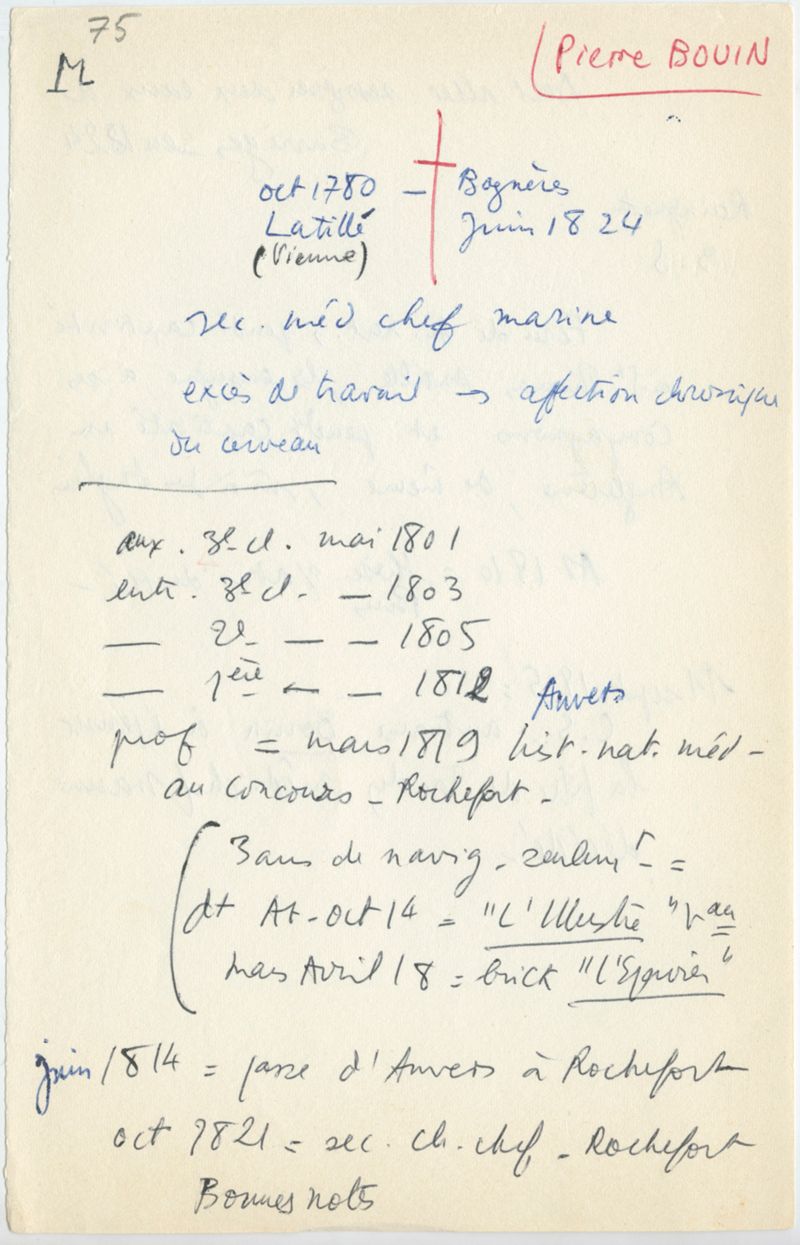 75
M
Pierre BOUIN
oct 1780 — Bagnères
Latillé juin 1824
(Vienne)
sec. méd chef marine
excès de travail → affection chronique
du cerveau
aux. 3e cl. mai 1801
entr. 3e cl. — 1803
— 2e — — 1805
— 1ère — — 1812 Anvers
prof = mars 1819 hist. nat. méd -
au concours - Rochefort -
3 ans de navig. seulemt - =
dt At - oct 14 = "L'Illustre" Vau
mars Avril 18 = brick "L'Epervier"
juin 1814 = passe d'Anvers à Rochefort
oct 1821 = sec. ch. chef - Rochefort
Bonnes notes